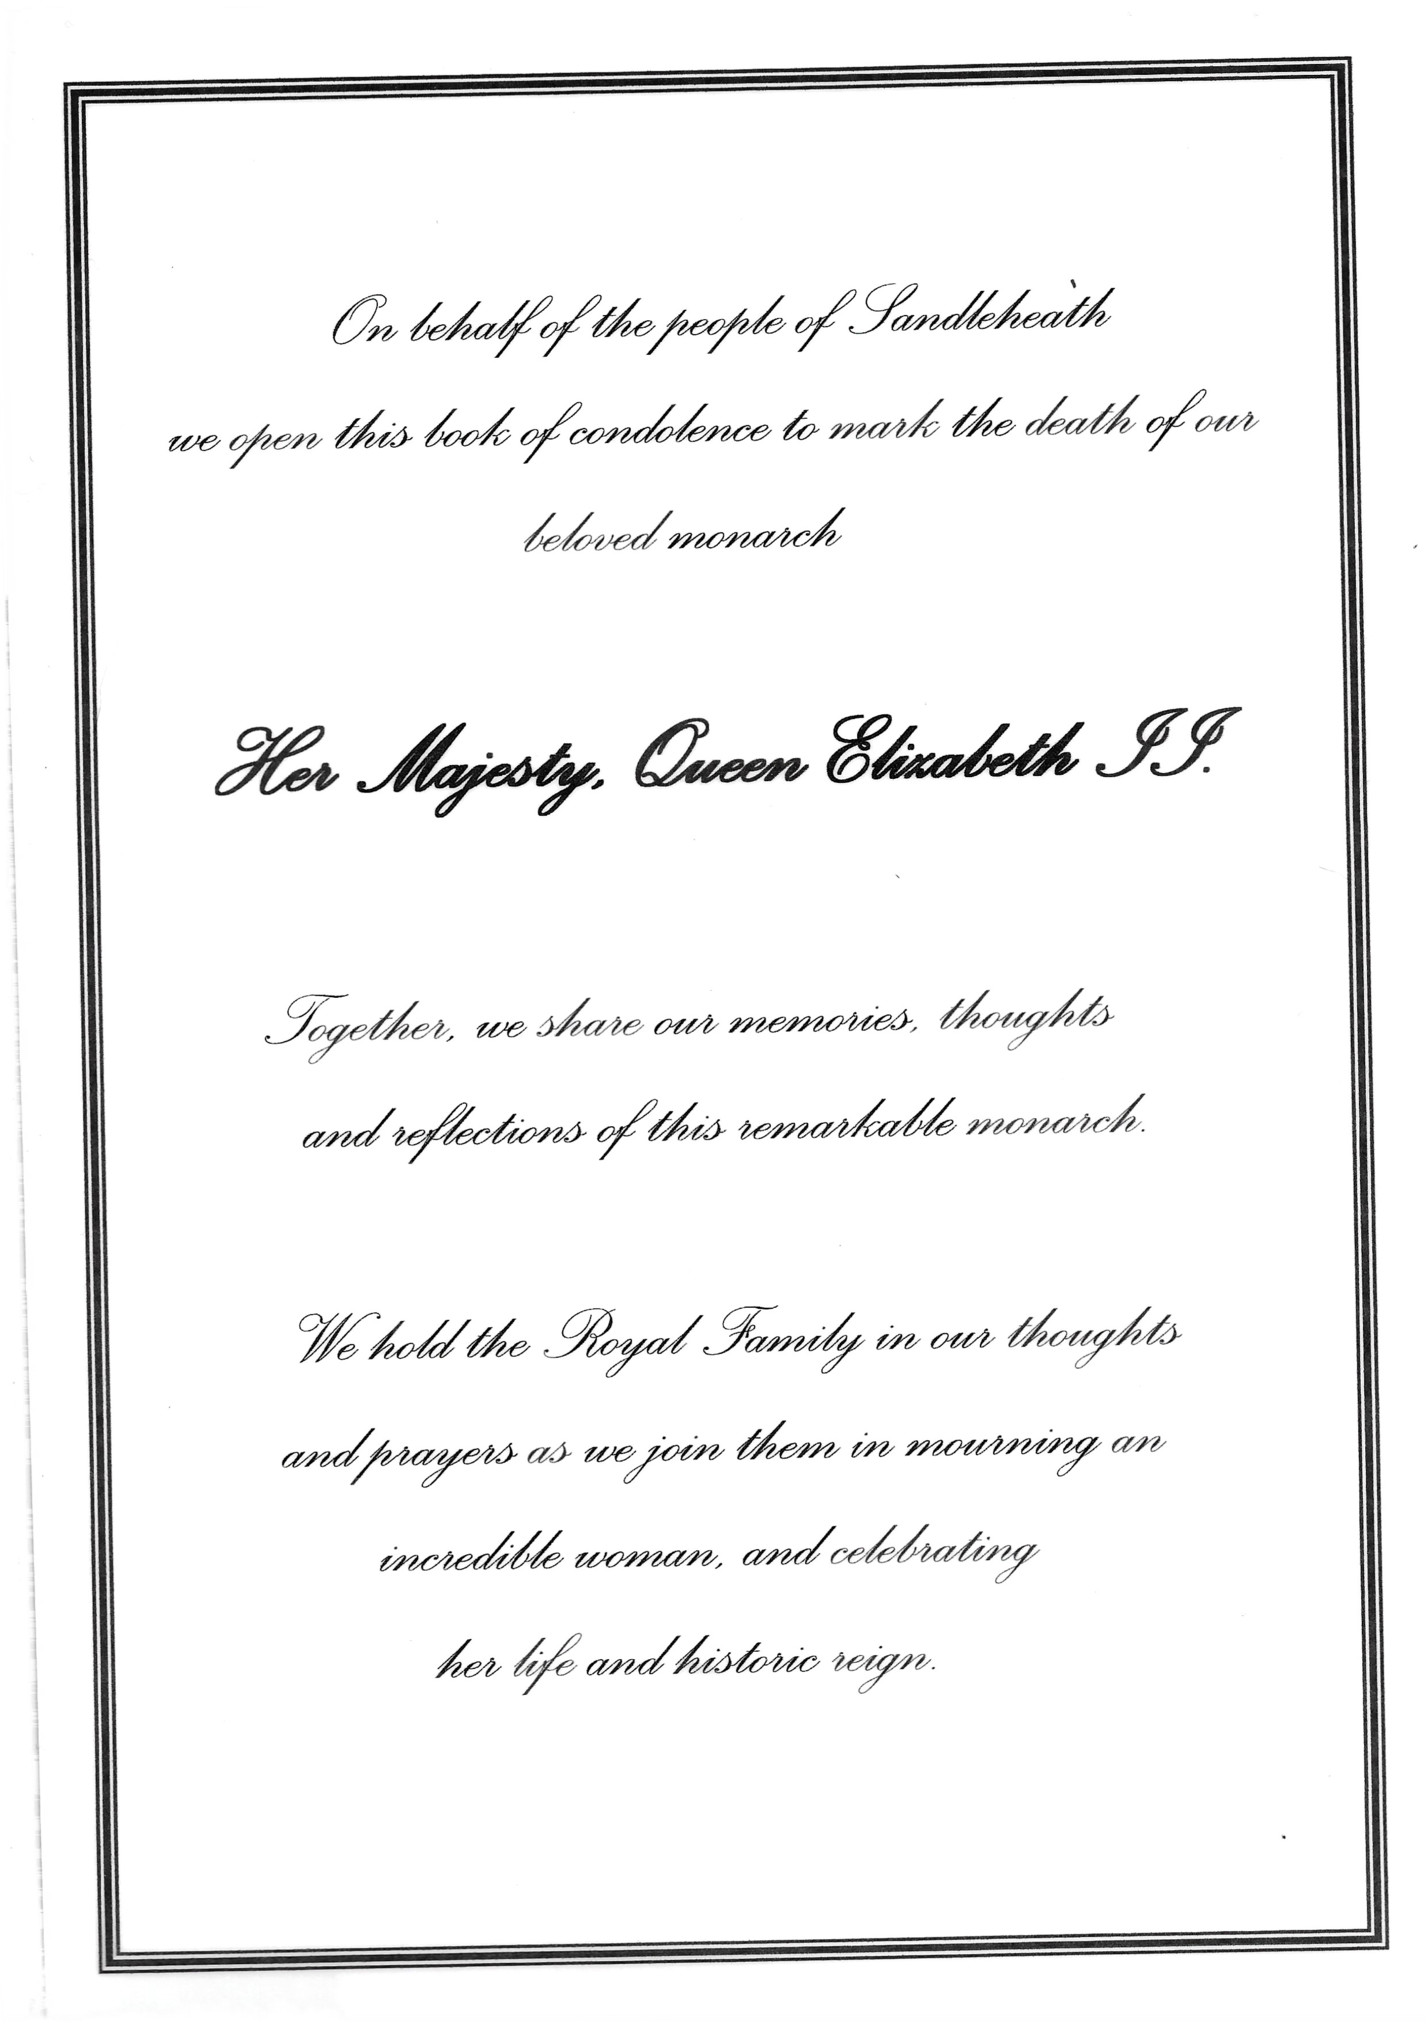 On behalf of the people of Sandleheath
we open this book of condolence to mark the death of our
beloved monarch
Her Majesty, Queen Elizabeth II.
Together, we share our memories, thoughts
and reflections of this remarkable monarch.
We hold the Royal Family in our thoughts
and prayers as we join them in mourning an
incredible woman, and celebrating
her life and historic reign.